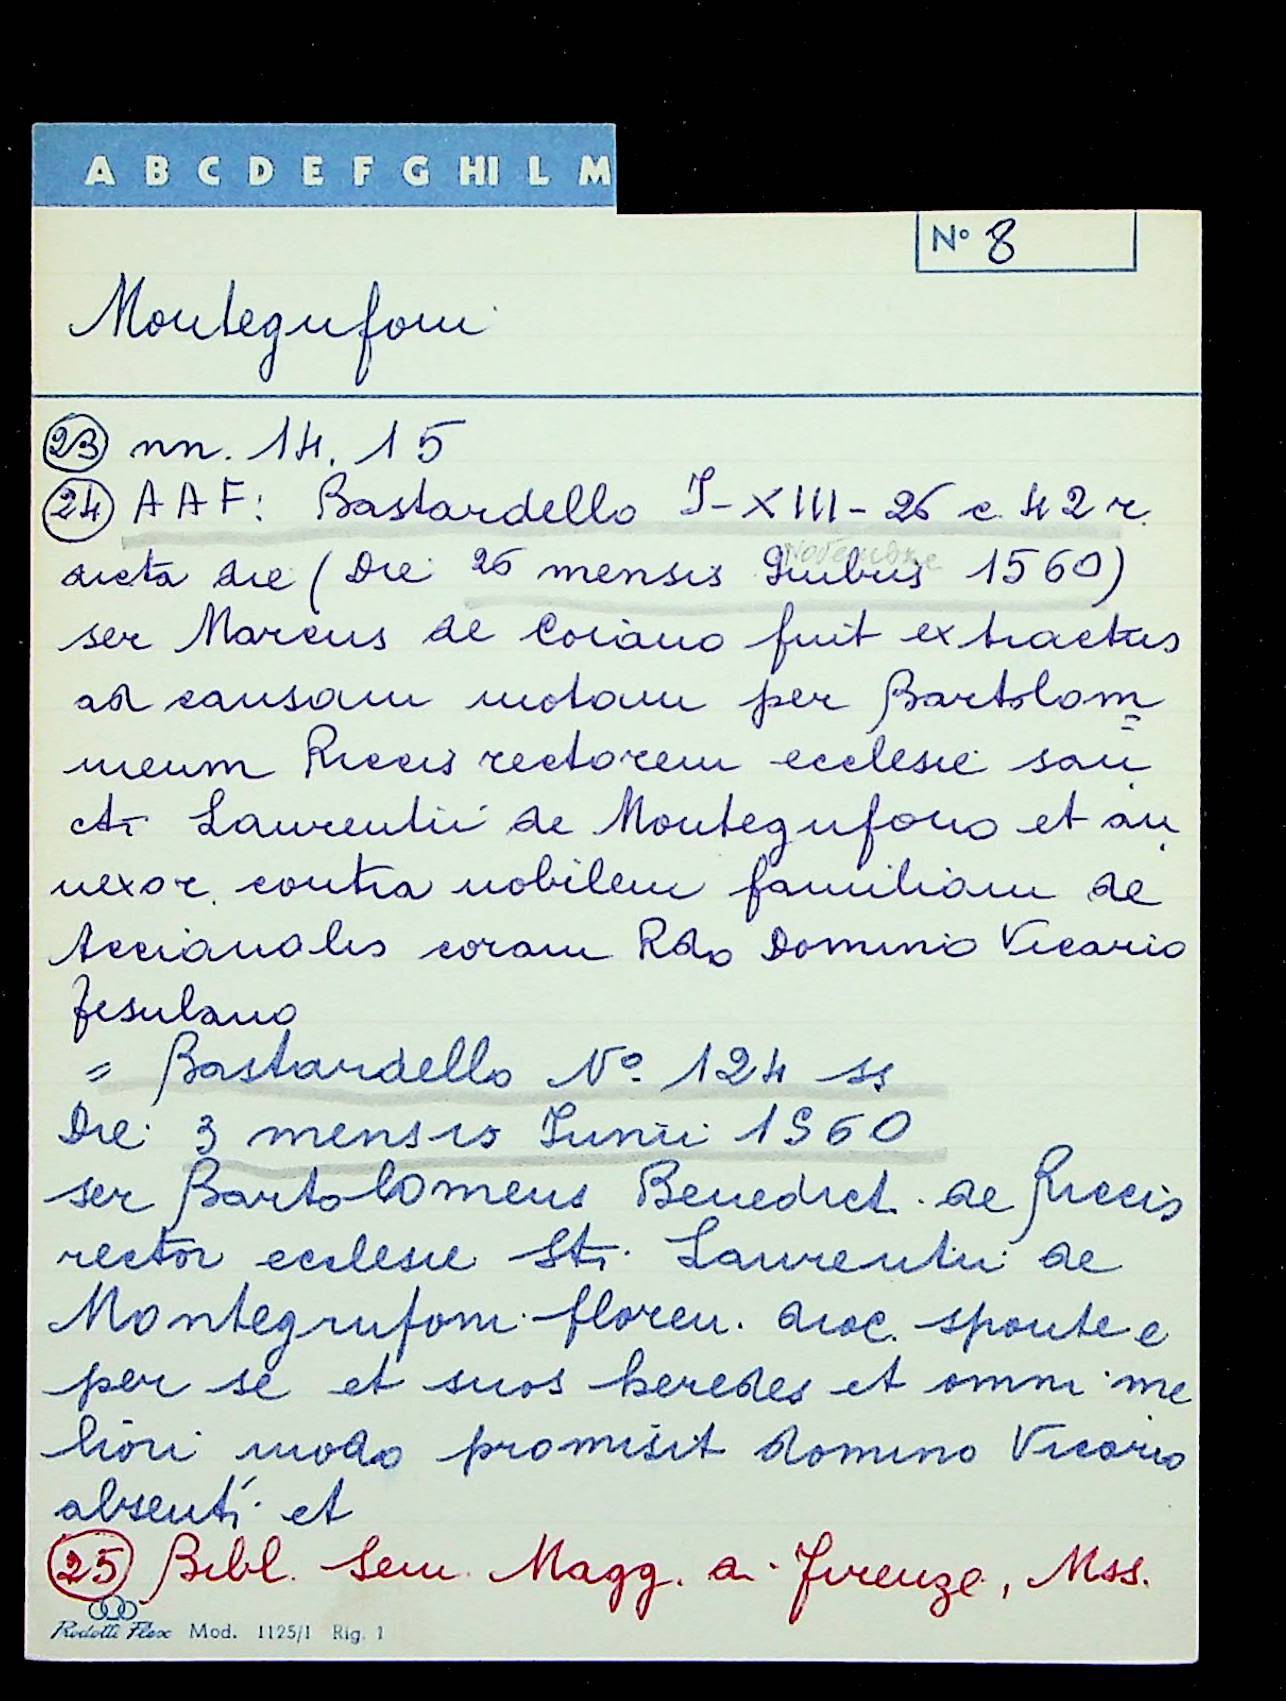 A B C D E F G HI L M
N° 8
Montegufoni
23 nn. 14. 15
24 AAF: Bastardello I-XIII-26 c. 42 r.
Novembre
dicta die (Die 26 mensis 1560)
ser Marcus de Coiano fuit extractus
ad causam motam per Bartolom=
meum Riccis rectorem ecclesie san
cti Laurentii de Montegufono et an
nexor. contra nobilem familiam de
Acciaiolis coram Rdo Dominio Vicario
fesulano
= Bastardello N° 124 ss
Die 3 mensis Iunii 1560
ser Bartolomeus Benedict. de Riccis
rector ecclesie Sti. Laurentii de
Montegufoni floren. dioc. sponte e
per se et suos heredes et omni me
liori modo promisit domino Vicario
absenti et
25 Bibl. Sem. Magg. a. Firenze, Mss.
Rodolli Flex Mod. 1125/1 Rig. 1